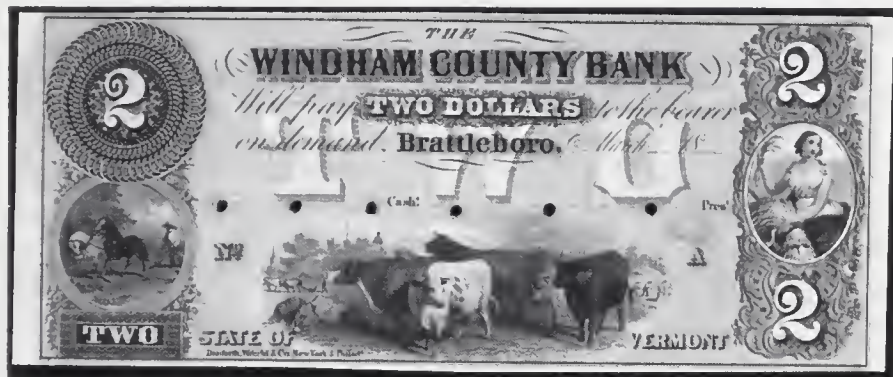 THE
WINDHAM COUNTY BANK
Will pay TWO DOLLARS to the bearer
on demand. Brattleboro.
2
2
Cashr
Prest
No
A
TWO
STATE OF
VERMONT
2
Danforth, Wright & Co. New York & Philada